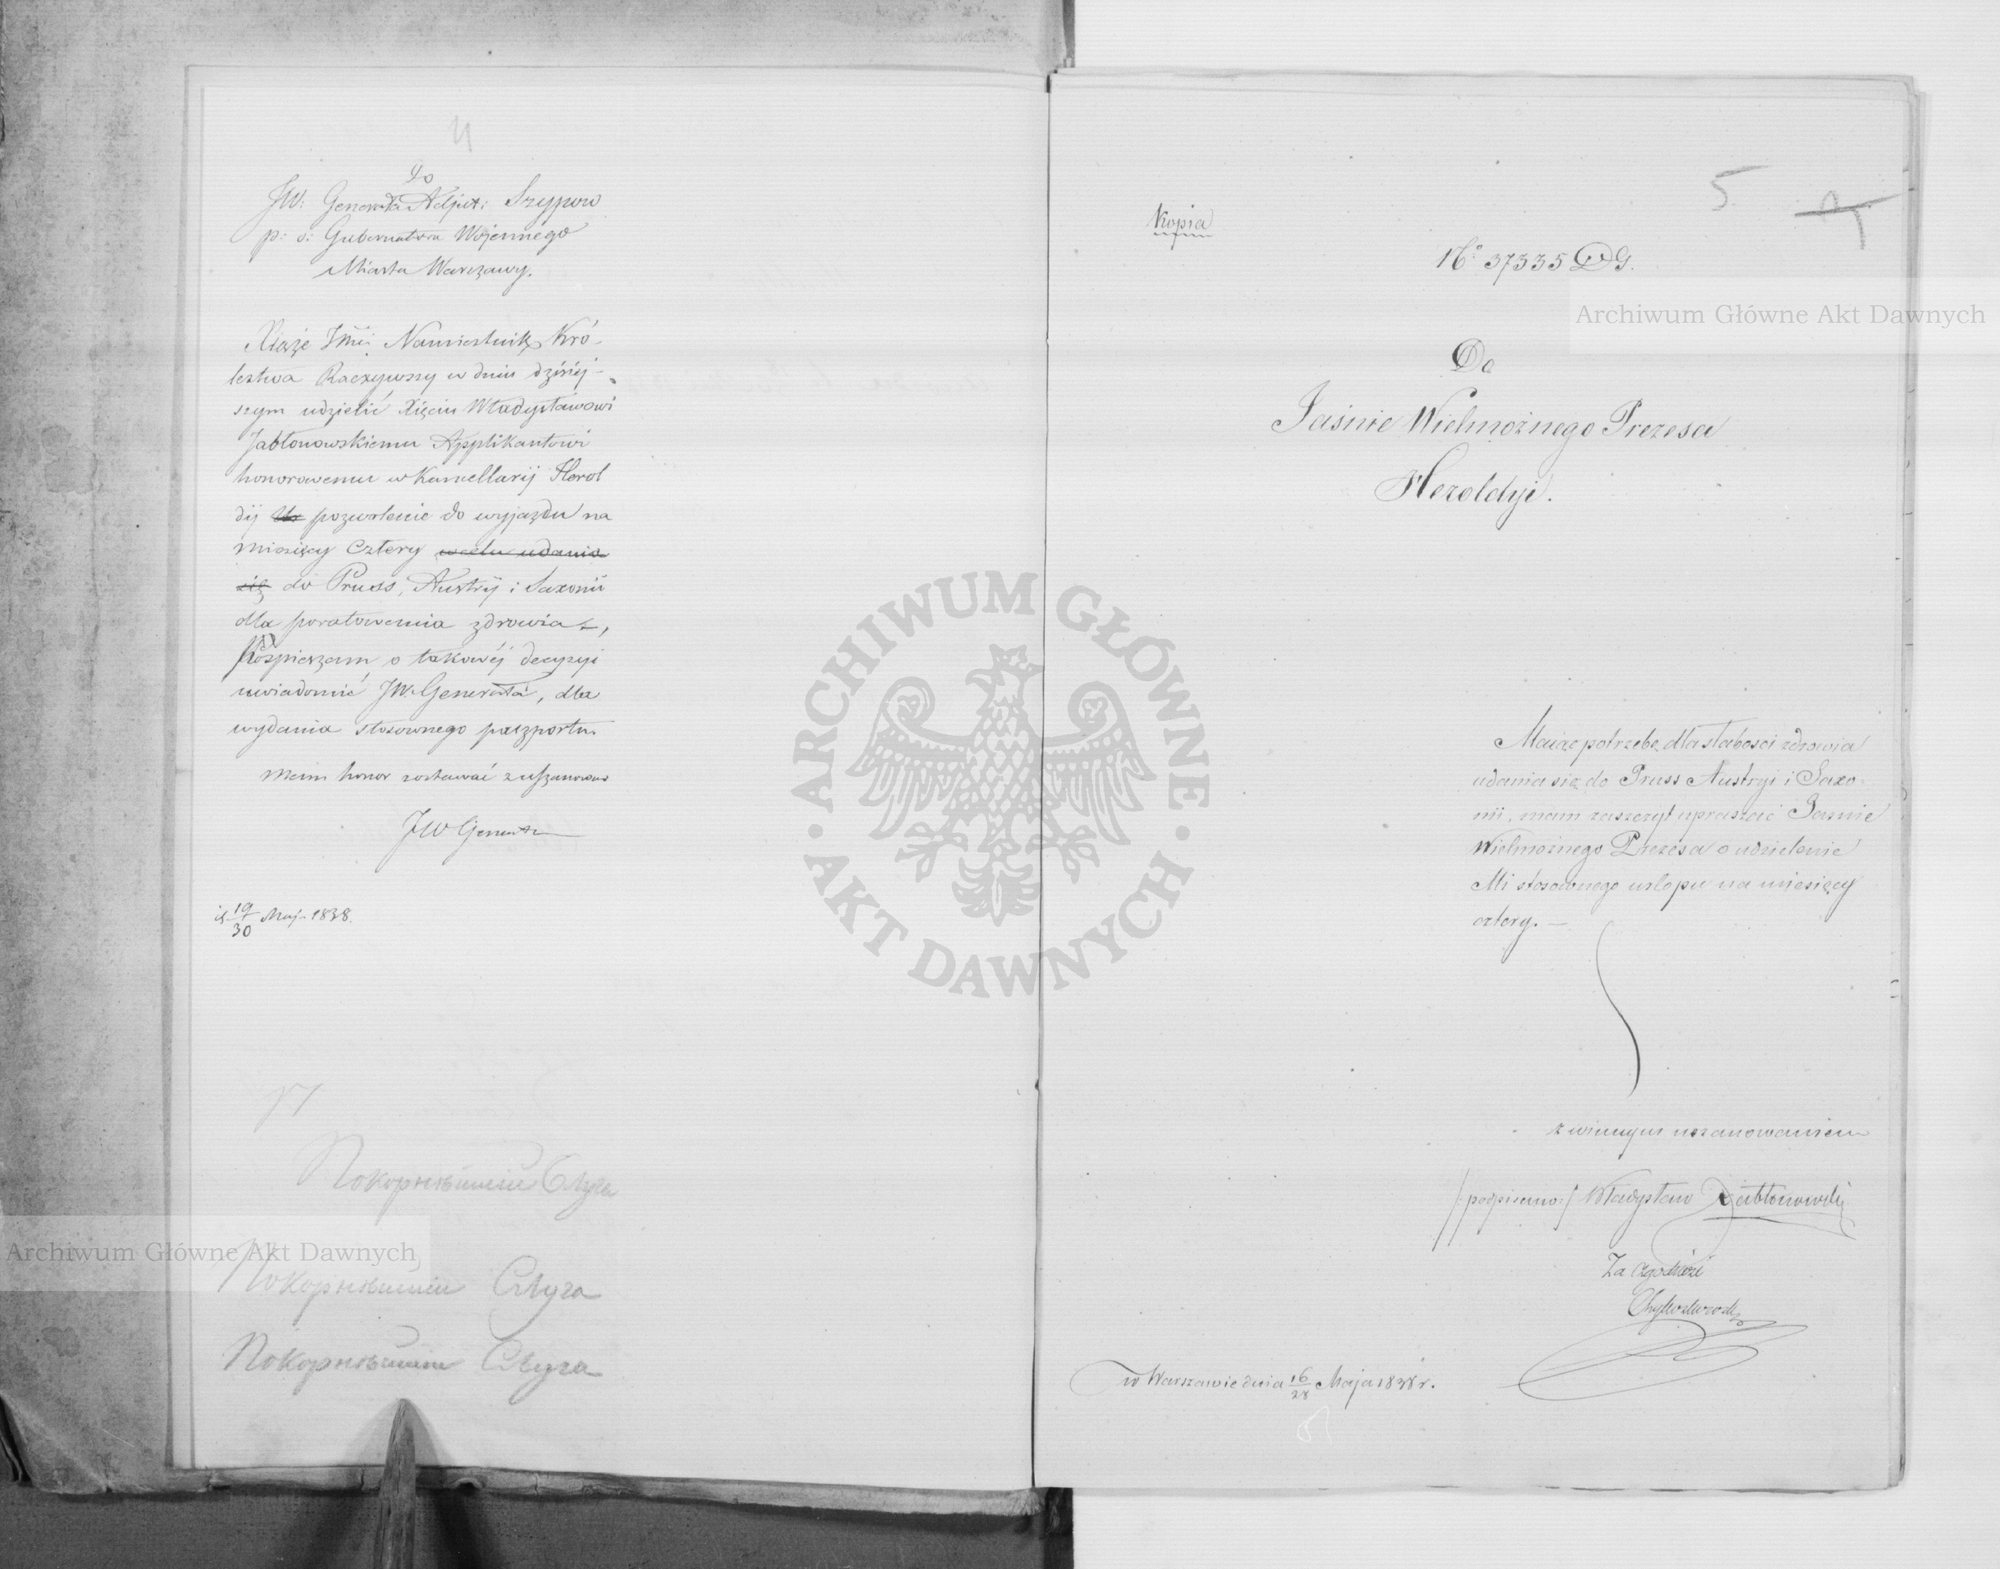 4
Do
JW: Generała Adjut: Szypow
p: o: Gubernatora Wojennego
Miasta Warszawy.
Xiąże Jmć Namiestnik Kró-
lestwa Raczywszy w dniu dzisiej-
szym udzielić Xięciu Władysławowi
Jabłonowskiemu Applikantowi
honorowemu w Kancellarij Herol
dij pozwolenie do wyjazdu na
miesięcy cztery w celu udania
się do Pruss, Austrij i Saxonii
dla poratowania zdrowia,
Pospieszam o takowéj decyzyi
uwiadomić JW. Generała, dla
wydania stosownego paszportu.
Mam honor zostawać z uszanowa
JW Generała
19/30 Maj 1838.
Покорнѣйшій Слуга
Покорнѣйшій Слуга
Покорнѣйшій Слуга
5
Kopia
No 37335 DG.
Do
Jaśnie Wielmożnego Prezesa
Heroldyi.
Maiąc potrzebę dla słabości zdrowia
udania się do Pruss Austryi i Saxo-
nii, mam zaszczyt upraszać Jaśnie
Wielmożnego Prezesa o udzielenie
Mi stosownego urlopu na miesięcy
cztery. —
z winnym uszanowaniem
/:podpisano:/ Władysław X Jabłonowski
Za zgodność
w Warszawie dnia 16/28 Maja 1838 r.
Archiwum Główne Akt Dawnych
Archiwum Główne Akt Dawnych
ARCHIWUM GŁÓWNE
AKT DAWNYCH